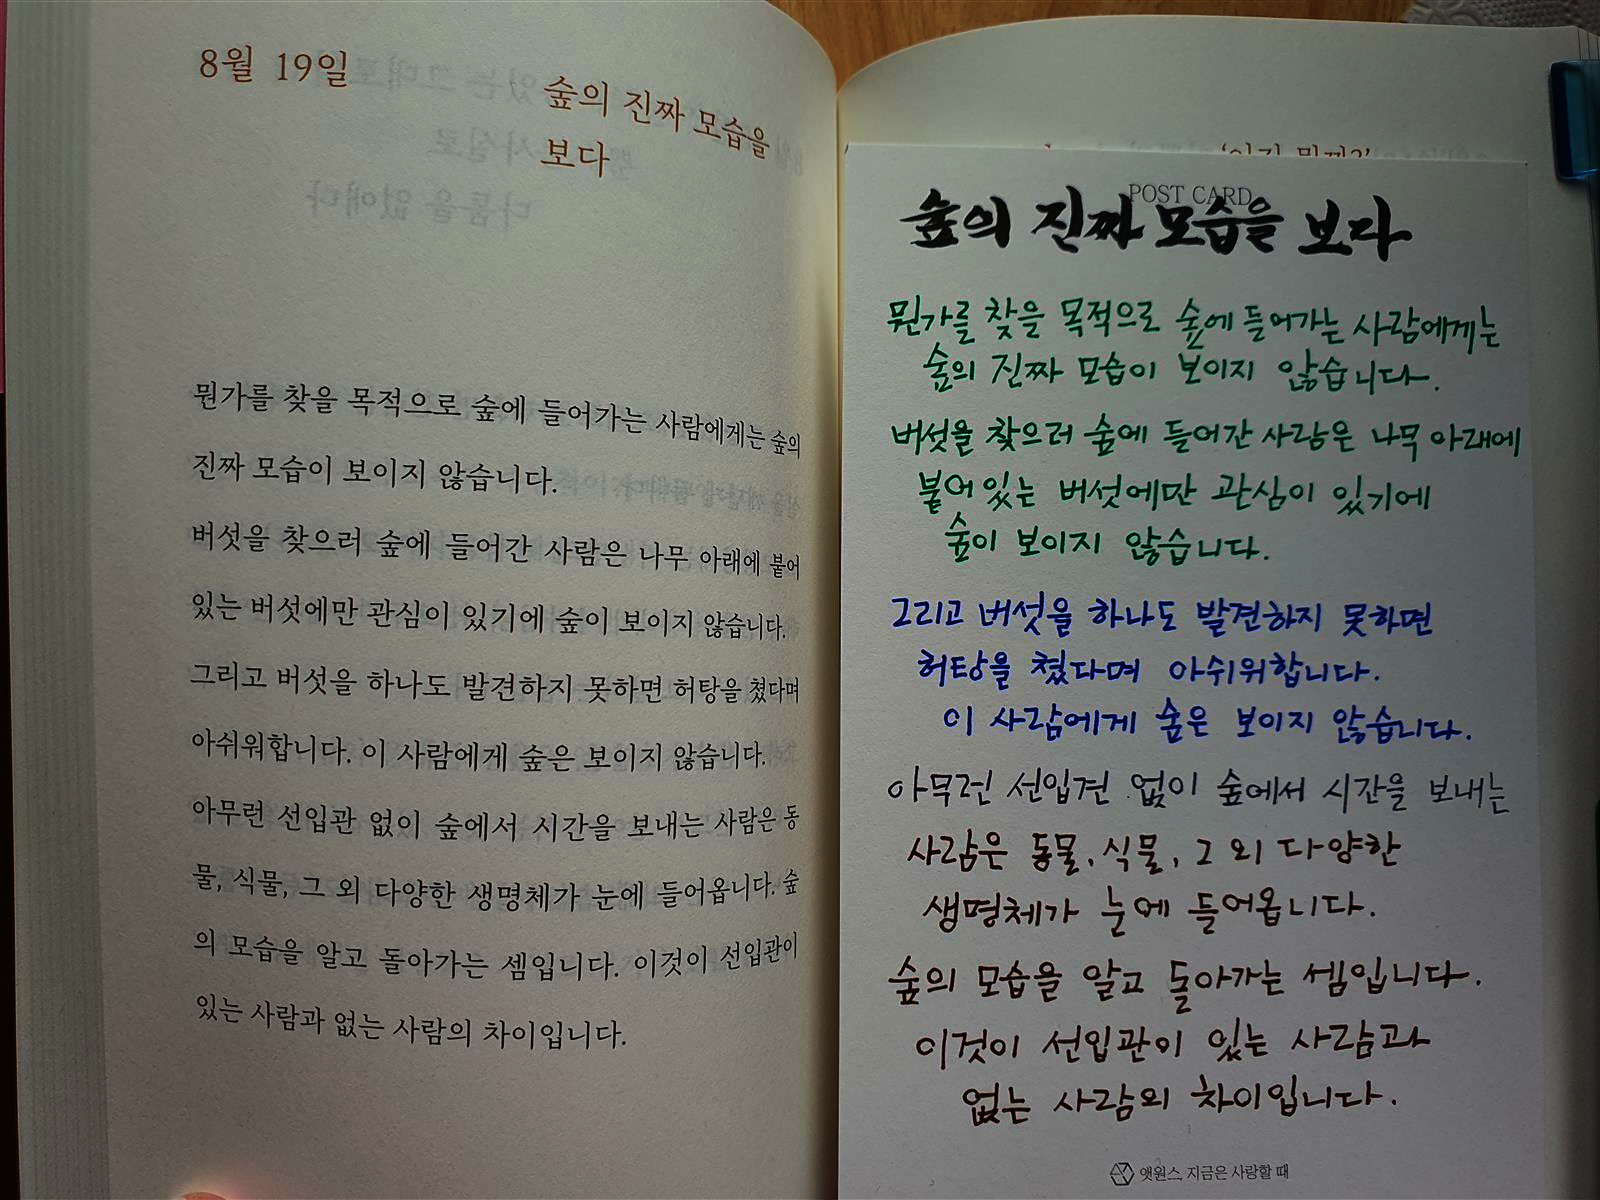 8월 19일
숲의 진짜 모습을
보다
뭔가를 찾을 목적으로 숲에 들어가는 사람에게는 숲의
진짜 모습이 보이지 않습니다.
버섯을 찾으러 숲에 들어간 사람은 나무 아래에 붙어
있는 버섯에만 관심이 있기에 숲이 보이지 않습니다.
그리고 버섯을 하나도 발견하지 못하면 허탕을 쳤다며
아쉬워합니다. 이 사람에게 숲은 보이지 않습니다.
아무런 선입관 없이 숲에서 시간을 보내는 사람은 동
물, 식물, 그 외 다양한 생명체가 눈에 들어옵니다. 숲
의 모습을 알고 돌아가는 셈입니다. 이것이 선입관이
있는 사람과 없는 사람의 차이입니다.
POST CARD
숲의 진짜 모습을 보다
뭔가를 찾을 목적으로 숲에 들어가는 사람에게는
숲의 진짜 모습이 보이지 않습니다.
버섯을 찾으러 숲에 들어간 사람은 나무 아래에
붙어 있는 버섯에만 관심이 있기에
숲이 보이지 않습니다.
그리고 버섯을 하나도 발견하지 못하면
허탕을 쳤다며 아쉬워합니다.
이 사람에게 숲은 보이지 않습니다.
아무런 선입견 없이 숲에서 시간을 보내는
사람은 동물, 식물, 그 외 다양한
생명체가 눈에 들어옵니다.
숲의 모습을 알고 돌아가는 셈입니다.
이것이 선입관이 있는 사람과
없는 사람의 차이입니다.
앳원스, 지금은 사랑할 때